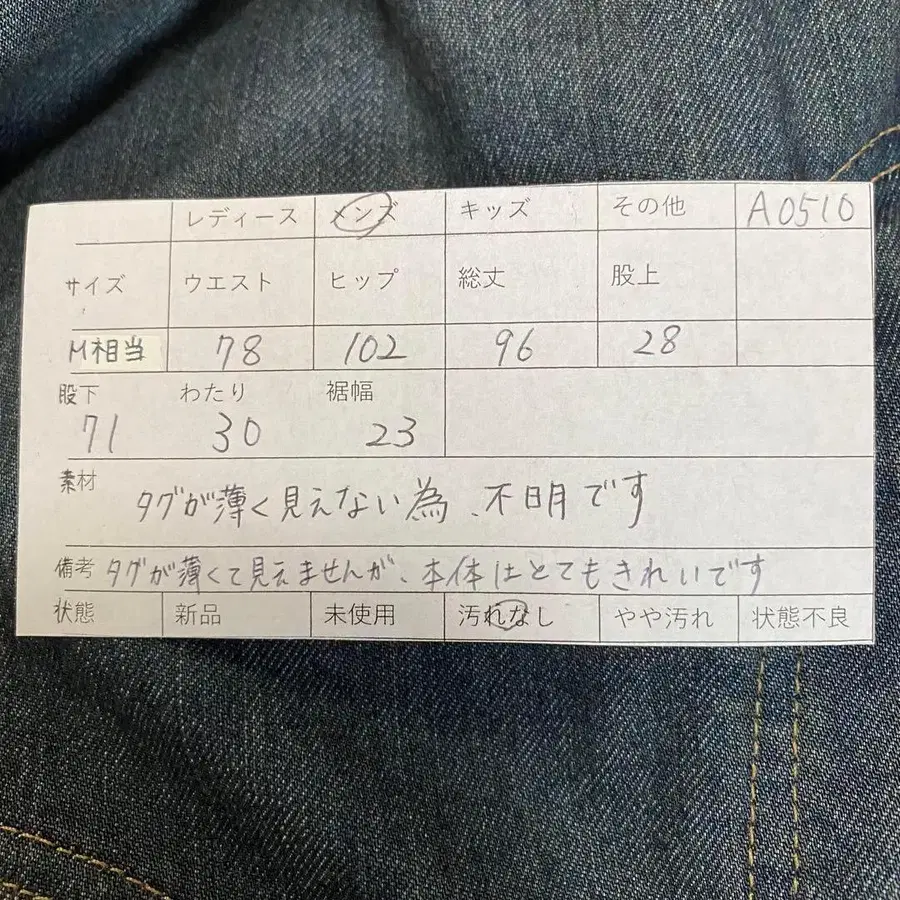 レディース メンズ キッズ その他 A0510
サイズ ウエスト ヒップ 総丈 股上
M相当 78 102 96 28
股下 わたり 裾幅
71 30 23
素材 タグが薄く見えない為、不明です
備考 タグが薄くて見えませんが、本体はとてもきれいです
状態 新品 未使用 汚れなし やや汚れ 状態不良